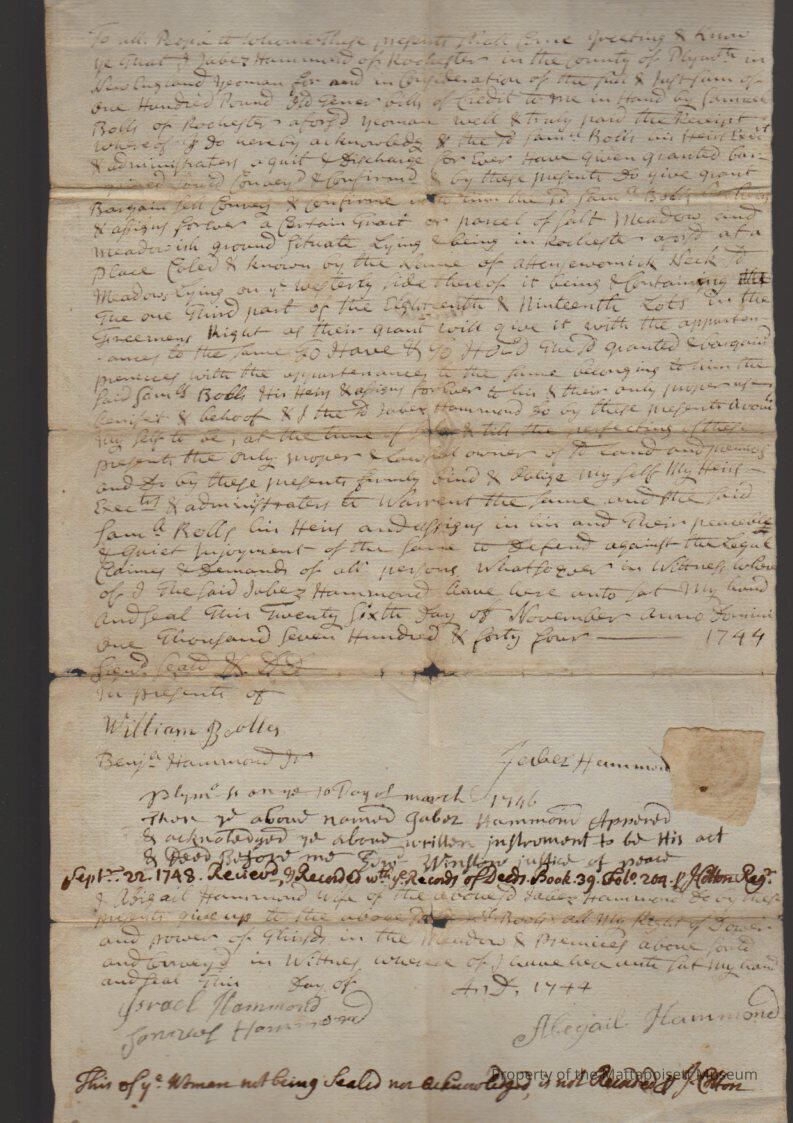 To all People to whome these presents shall Come Greeting & Know
ye that I Jabez Hammond of Rochester in the County of Plymth in
New England yeoman for and in Consideration of the full & Just sum of
one Hundred Pound old tener bills of Credit to me in Hand by Samuel
Bolls of Rochester aforsd yeoman well & truly paid the Receipt
whereof I do hereby acknowledg & the sd Samll Bolls his Heirs Exect
& administraters aquit & Discharge for Ever Have given granted bar-
gained sould Convey'd & Confirmd & by these presents do give grant
Bargain sell Convey & Confirme unto him the sd Samll Bolls his heirs
& assigns forever a Certain Tract or parcel of salt meadow and
meadowish ground situate Lying & being in Rochester aforsd at a
place Coled & known by the Name of Neck sd
Meadow Lying on ye westerly side there of it being & Containing
the one third part of the Eighteenth & Ninteenth Lots in the
Right as their grant will give it with the apparten-
ances to the same To Have & To Hold the sd granted & bargaind
premices with the appurtenances to the same belonging to him the
said Samll Bolls His Heirs & assigns forever to his & their only proper use
benifit & behoof & I the sd Jabez Hammond do by these presents avouch
my self to be, at the time of & till the perfecting of these
presents the only proper & Lawfull owner of sd Land and premices
and do by these presents firmly bind & oblige my self my Heirs
Exectrs & administraters to Warrent the same and the said
Samll Bolls his Heirs and assigns in his and their peaceble
& quiet injoyment of the same to Defend against the Legal
Claimes & Demands of all persons whatsoever in Wittness where
of I the said Jabez Hammond have here unto sat my hand
and seal this Twenty sixth Day of November anno Domini
one Thousand seven Hundred & forty four 1744
Signd seald & DD
in presents of
William Bolles
Benja Hammond Jr
Jabez Hammond
Plymo ss on ye 10 Day of march 1746
Then ye above named Jabez Hammond Appered
& acknoledged ye above written instroment to be His act
& Deed Before me Edwd Winslow justice of peace
Septr 22. 1748. Recievd, & Recorded with ye Records of Deeds. Book. 39. Folo. 204. p J Cotton Regr
& Abigail Hammond wife of the abovesd Jabez Hammond do by these
presents give up to the above Bolls all My Right of Dower
and power of thirds in the meadow & premices above sould
and Convey'd in Wittnes whereof I have here unto sat my hand
and seal this Day of An D. 1744
Israel Hammond
Hammond
Abigail Hammond
This of ye Women not being Sealed nor acknowledged, is not Recorded p J Cotton
Property of the Mattapoisett Museum